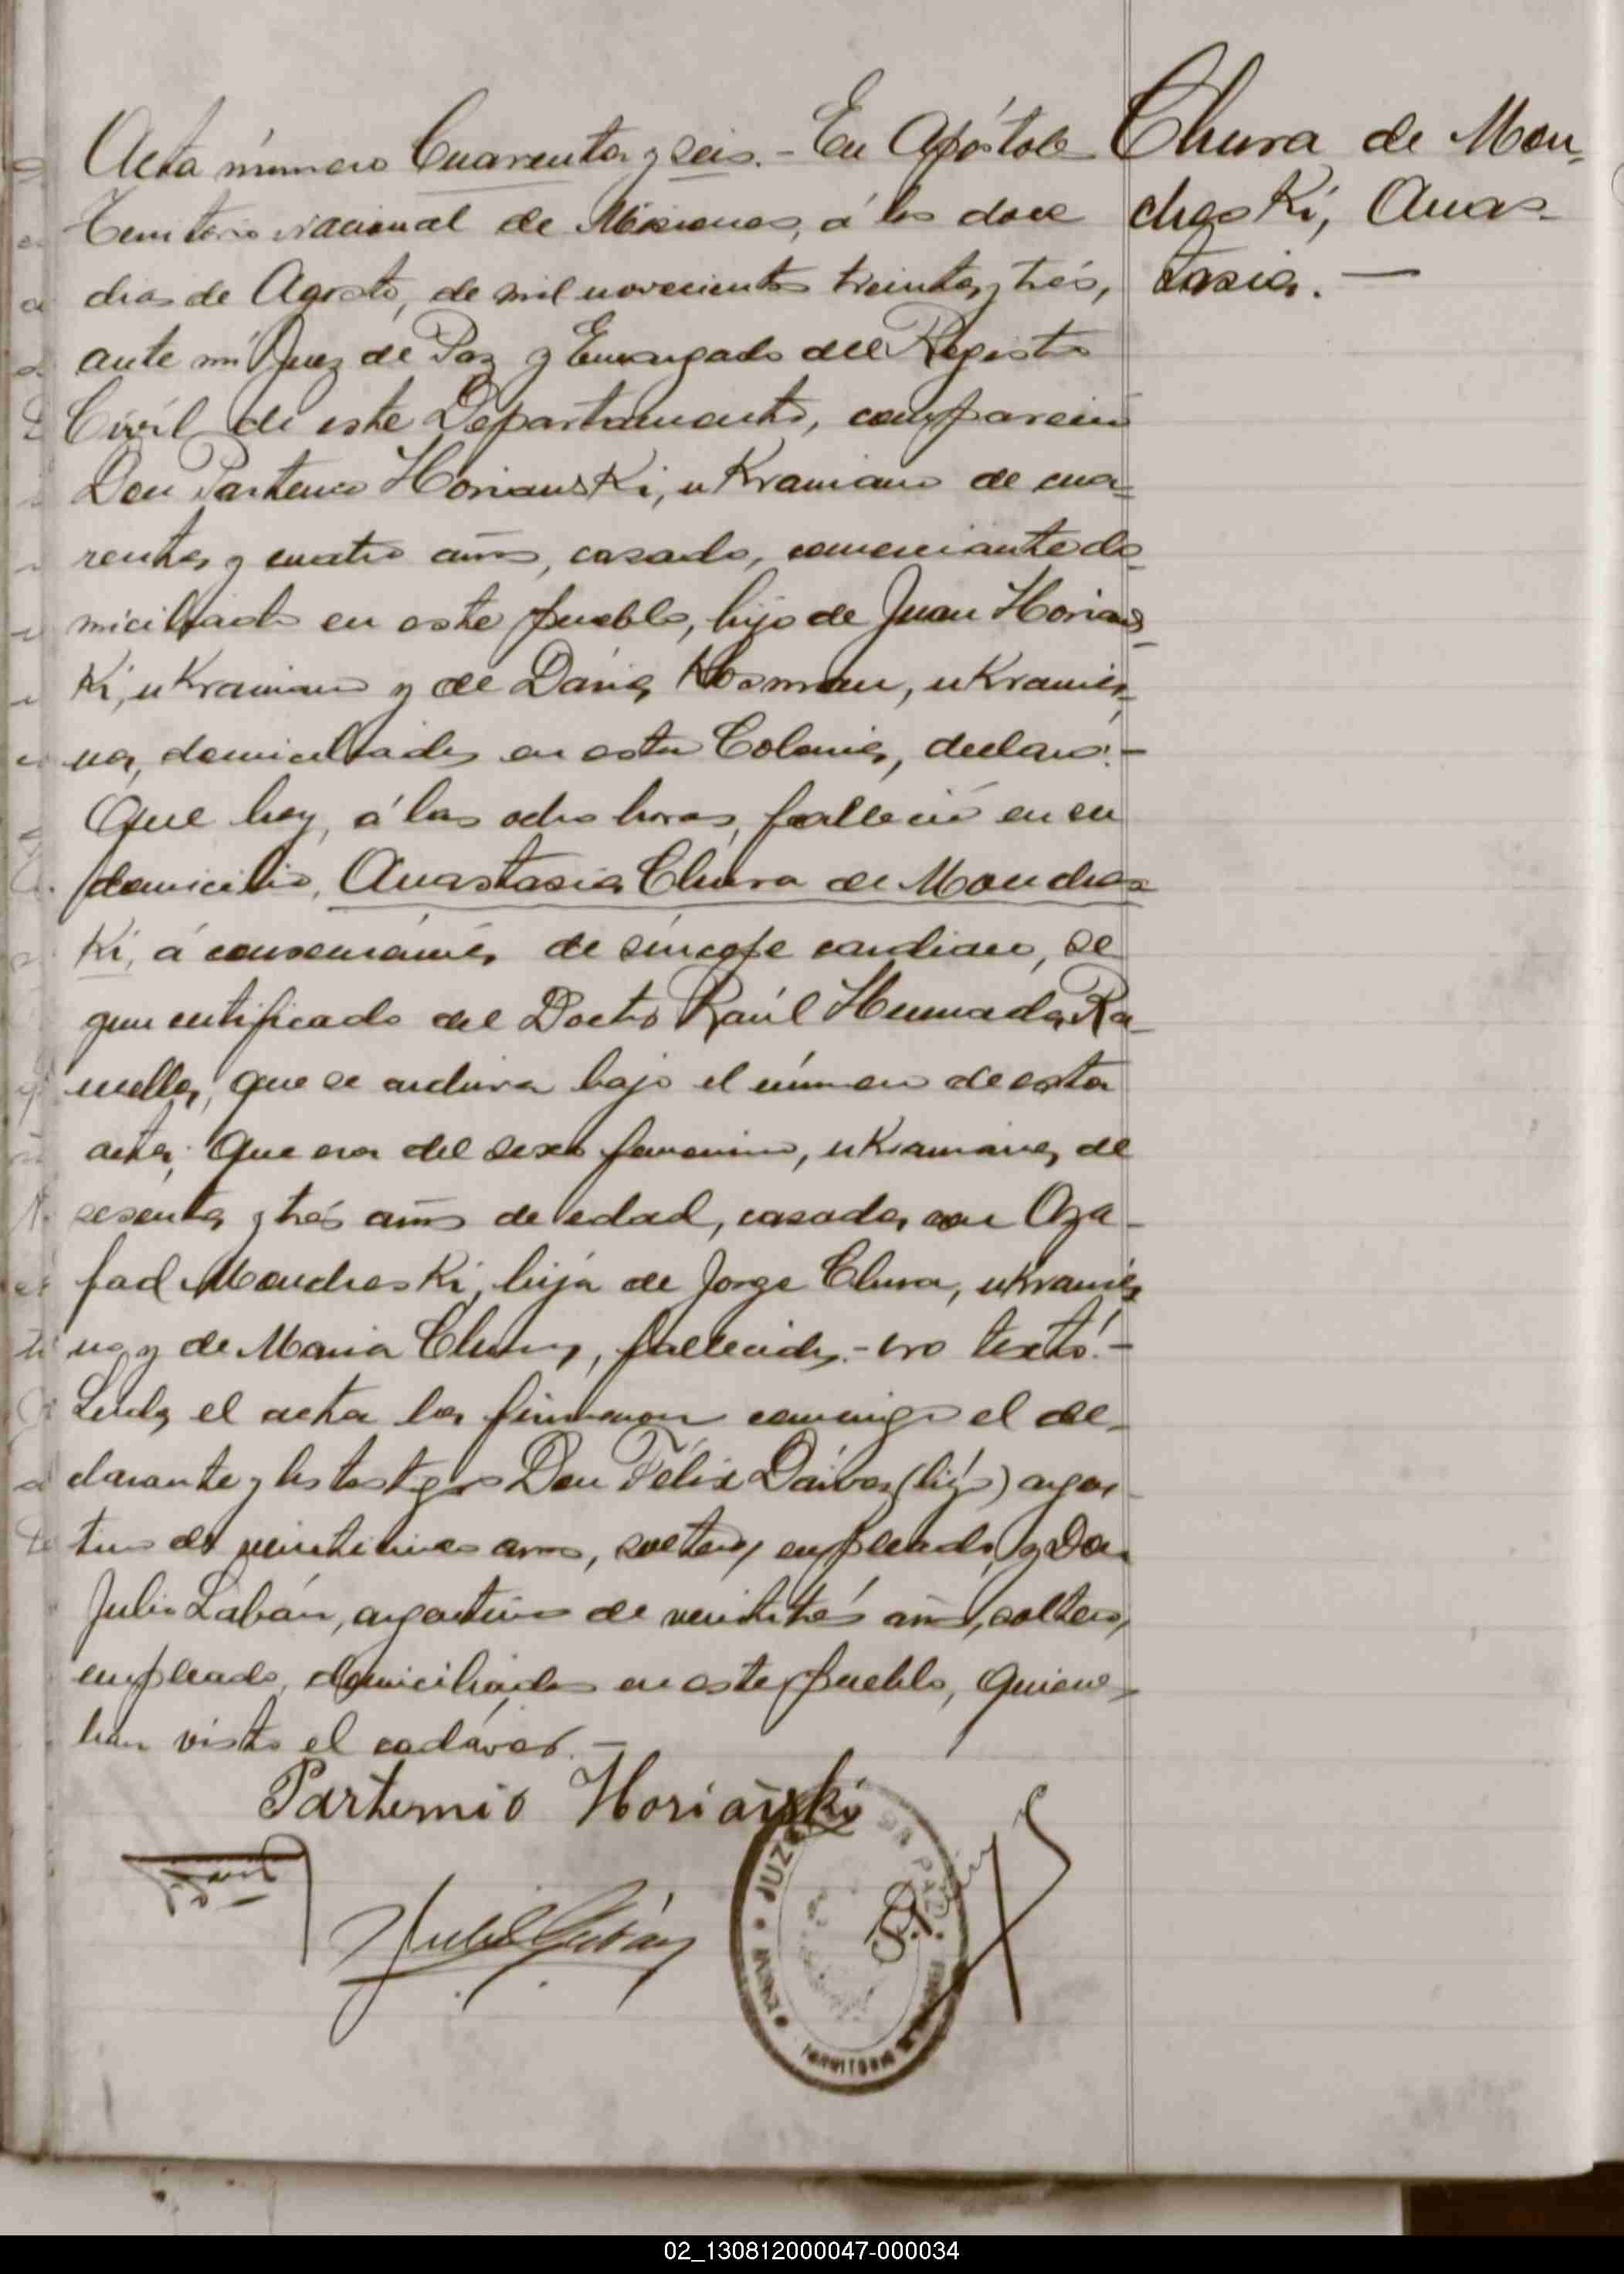 Acta número Cuarenta y seis.- En Apóstoles
Territorio nacional de Misiones, á los doce
dias de Agosto, de mil novecientos treinta y trés,
ante mí Juez de Paz y Encargado del Registro
Civil de este Departamento, compareció
Don Partemio Horianski, ukraniano de cua=
renta y cuatro años, casado, comerciante do=
miciliado en este pueblo, hijo de Juan Horians=
ki, ukraniano y de Dária Kosman, ukrania=
na, domiciliados en esta Colonia, declaró:-
Que hoy, á las ocho horas, falleció en su
domicilio, Anastasia Chura de Mondres=
ki, á consecuéncia de síncope cardiaco, se
gun certificado del Doctor Raúl Hermada Ra-
mella, que se archiva bajo el número de esta
acta; Que era del sexo femenino, ukraniana, de
sesenta y trés años de edad, casada con Oza-
fad Mondreski, hija de Jorge Chura, ukrania
no y de Maria Chura, fallecida.- no testó.-
Leida el acta la firmaron conmigo el de-
clarante y los testigos Don Félix Dáivas (hijo) argen-
tino de veinticinco anos, soltero, empleado, y Don
Julio Labán, argentino de veintitrés años, soltero,
empleado, domiciliados en este pueblo, quienes
han visto el cadáver.-
Chura de Mon=
dreski, Anas-
tasia.-
Partemio Horianski
Julio Labán
JUZ
TERRITORIO
02_130812000047-000034